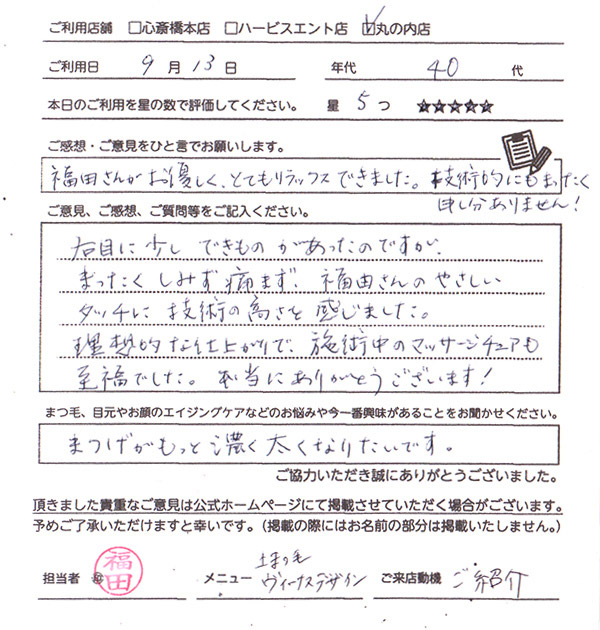 ご利用店舗 □心斎橋本店 □ハービスエント店 ☑丸の内店
ご利用日 9月13日 年代 40代
本日のご利用を星の数で評価してください。 星 5つ ★★★★★
ご感想・ご意見をひと言でお願いします。
福田さんがお優しく、とてもリラックスできました。技術的にもまったく
申し分ありません!
ご意見、ご感想、ご質問等をご記入ください。
右目に少しできものがあったのですが、
まったくしみず痛まず、福田さんのやさしい
タッチに技術の高さを感じました。
理想的な仕上がりで、施術中のマッサージチェアも
至福でした。本当にありがとうございます!
まつ毛、目元やお顔のエイジングケアなどのお悩みや今一番興味があることをお聞かせください。
まつげがもっと濃く太くなりたいです。
ご協力いただき誠にありがとうございました。
頂きました貴重なご意見は公式ホームページにて掲載させていただく場合がございます。
予めご了承いただけますと幸いです。(掲載の際にはお名前の部分は掲載いたしません。)
担当者 福田 メニュー 上まつ毛 ヴィーナスデザイン ご来店動機 ご紹介